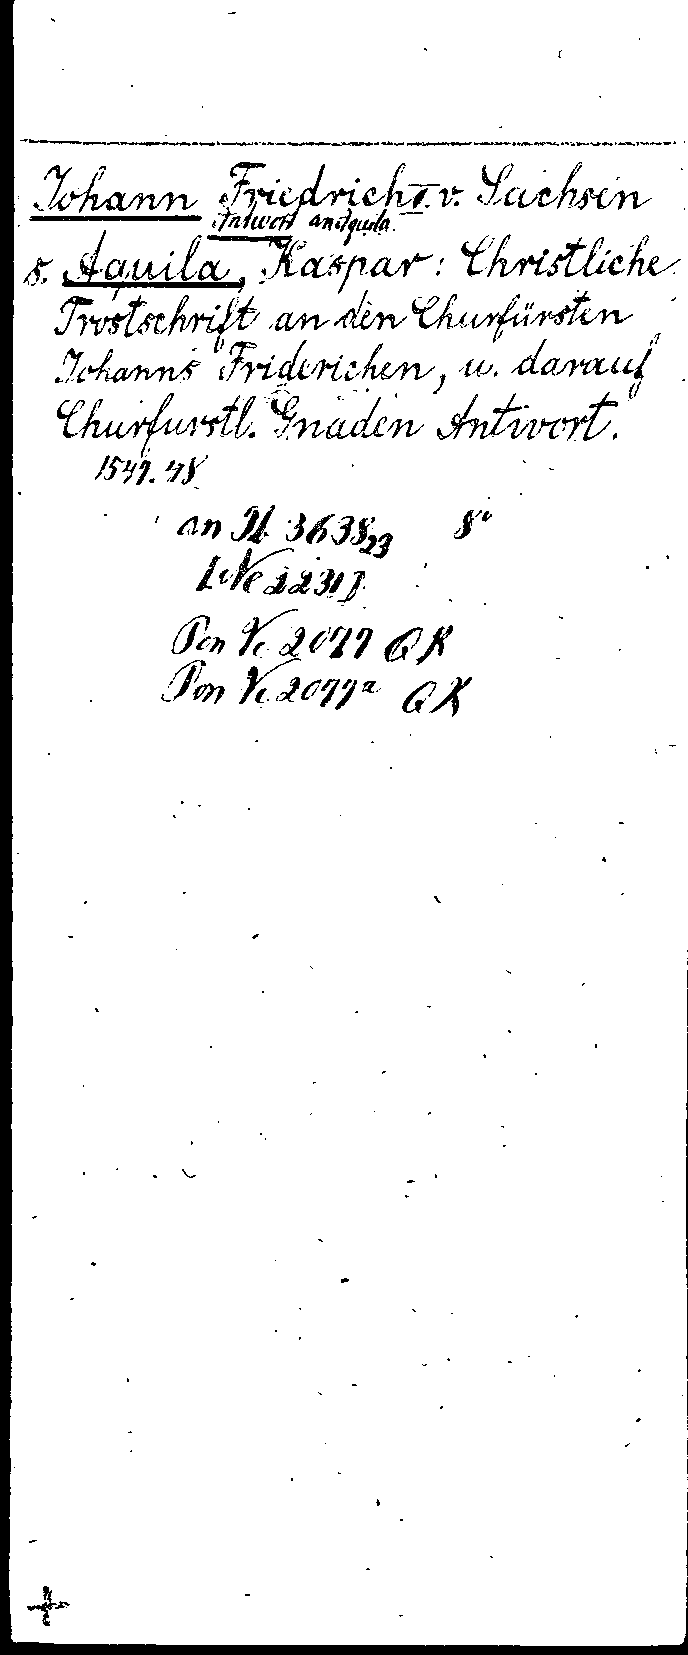 Johann Friedrich I. v. Sachsen
Antwort an Aquila.
s. Aquila, Kaspar: Christliche
Trostschrift an den Churfürsten
Johanns Friderichen, u. darauf
Churfurstl. Gnaden Antwort.
1547. 48
an 3638,23 8°
2231
Pon Vc 2077 QK
Pon Vc 2077a QK